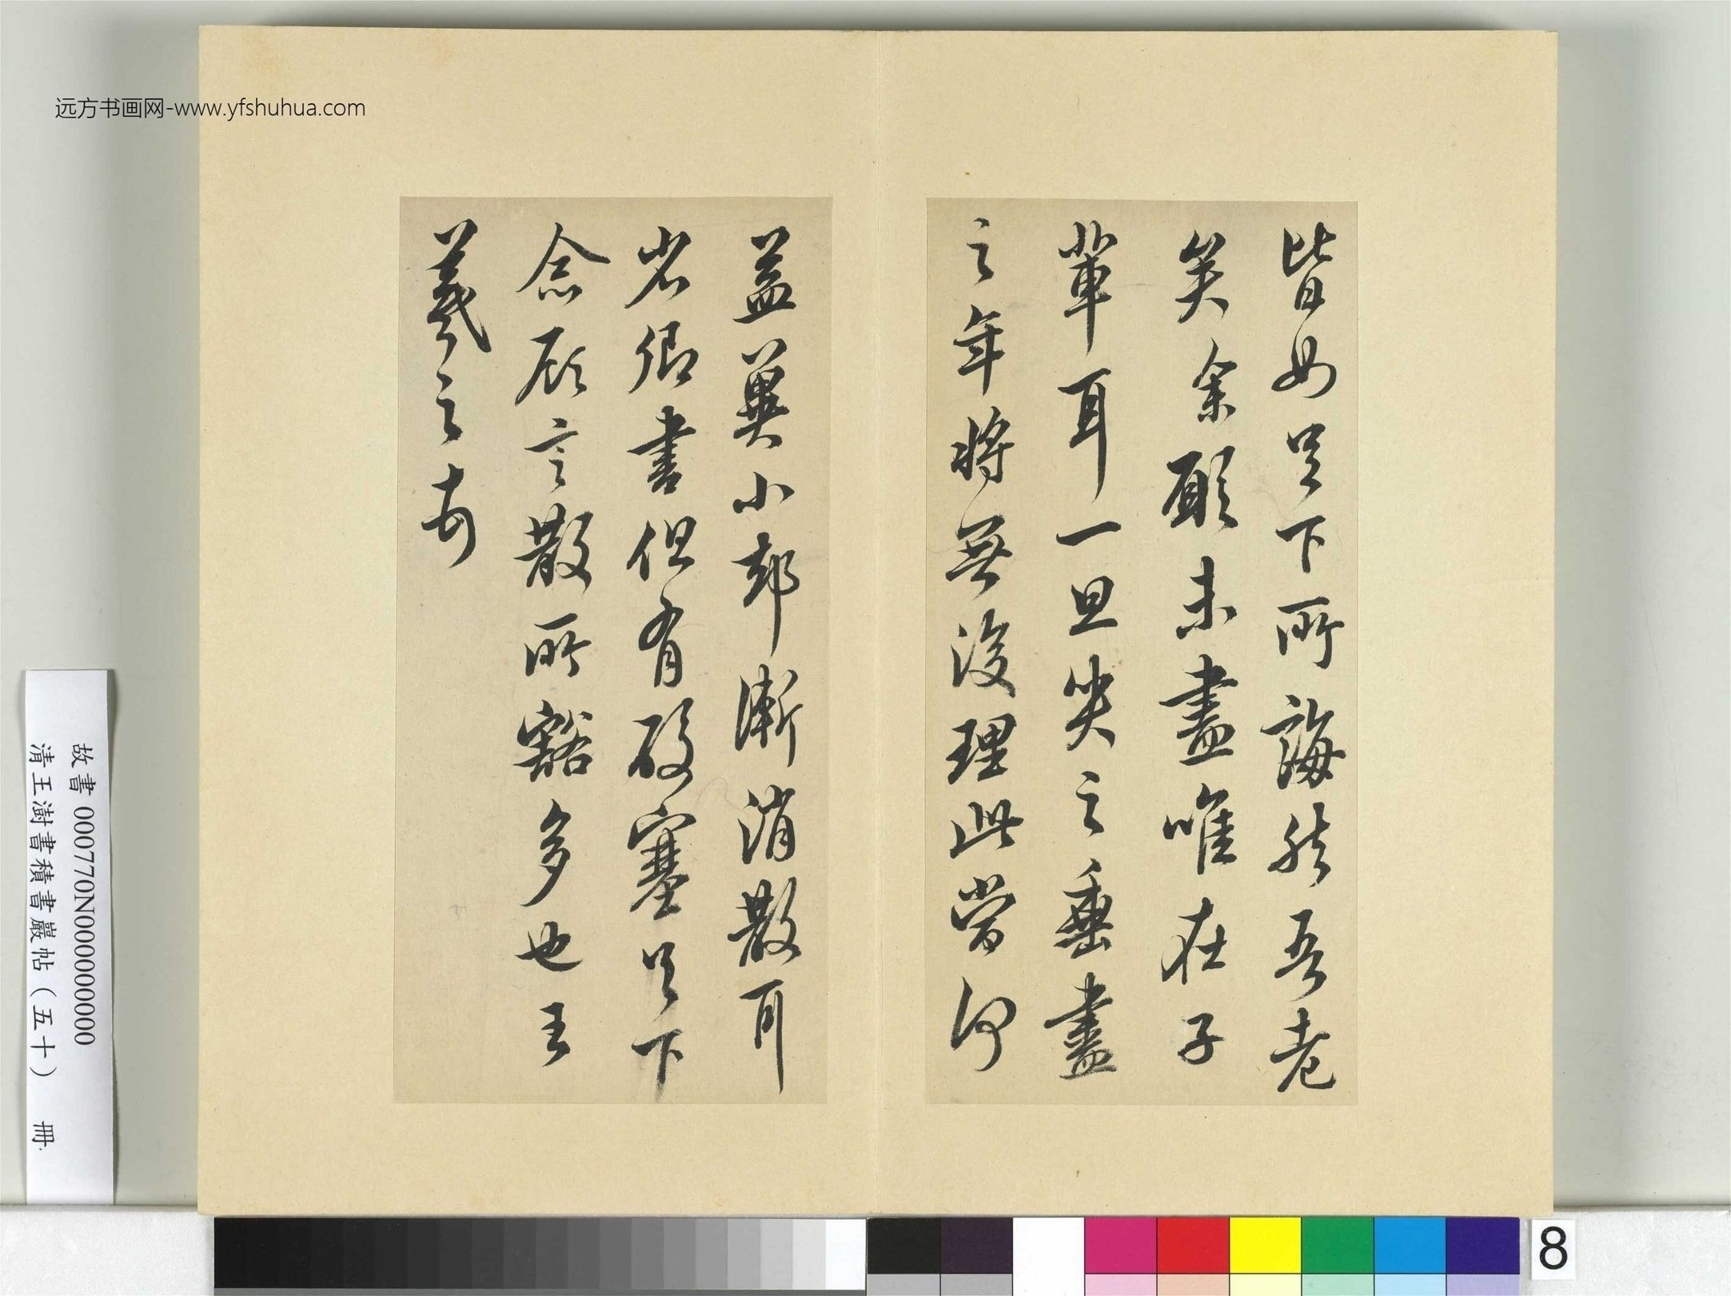 皆如足下所誨然吾老
矣余願未盡唯在子
輩耳一旦哭之垂盡
之年將無復理此當何
益冀小却漸消散耳
省卿書但有酸塞足下
念顧言散所豁多也王
羲之頓首
远方书画网-www.yfshuhua.com
故書 000770N000000000
清王澍書積書巖帖（五十） 冊
8